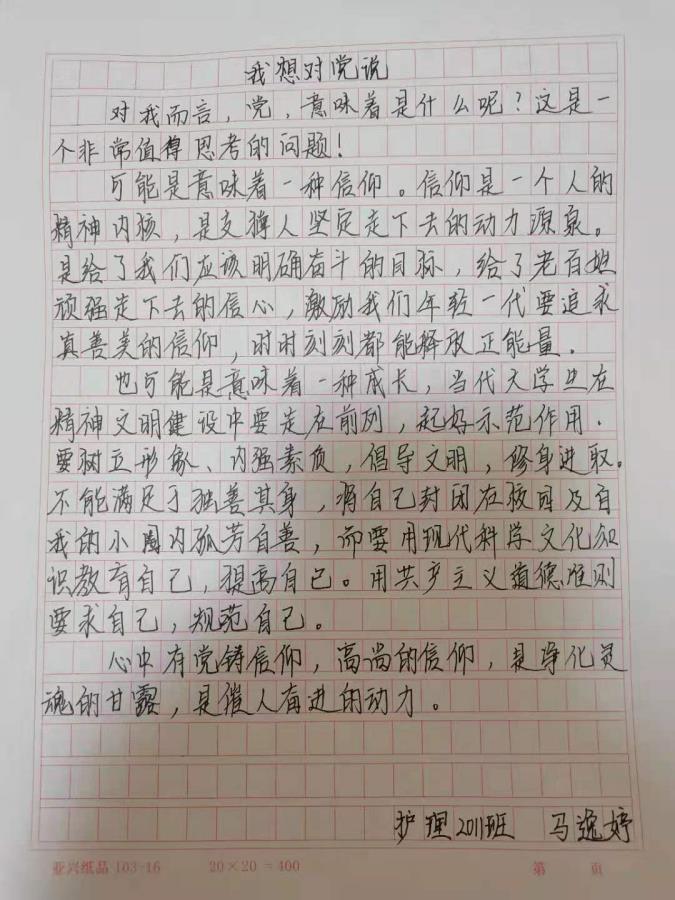 我想对党说
对我而言，党，意味着是什么呢？这是一
个非常值得思考的问题！
可能是意味着一种信仰。信仰是一个人的
精神内核，是支撑人坚定走下去的动力源泉。
是给了我们应该明确奋斗的目标，给了老百姓
顽强走下去的信心，激励我们年轻一代要追求
真善美的信仰，时时刻刻都能释放正能量．
也可能是意味着一种成长，当代大学生在
精神文明建设中要走在前列，起好示范作用．
要树立形象、内强素质，倡导文明，修身进取。
不能满足于独善其身，将自己封闭在校园及自
我的小圈内孤芳自善，而要用现代科学文化知
识教育自己，提高自己。用共产主义道德准则
要求自己，规范自己。
心中有党铸信仰，高尚的信仰，是净化灵
魂的甘露，是催人奋进的动力。
护理2011班 马逸婷
亚兴纸品 103-16 20×20=400 第 页